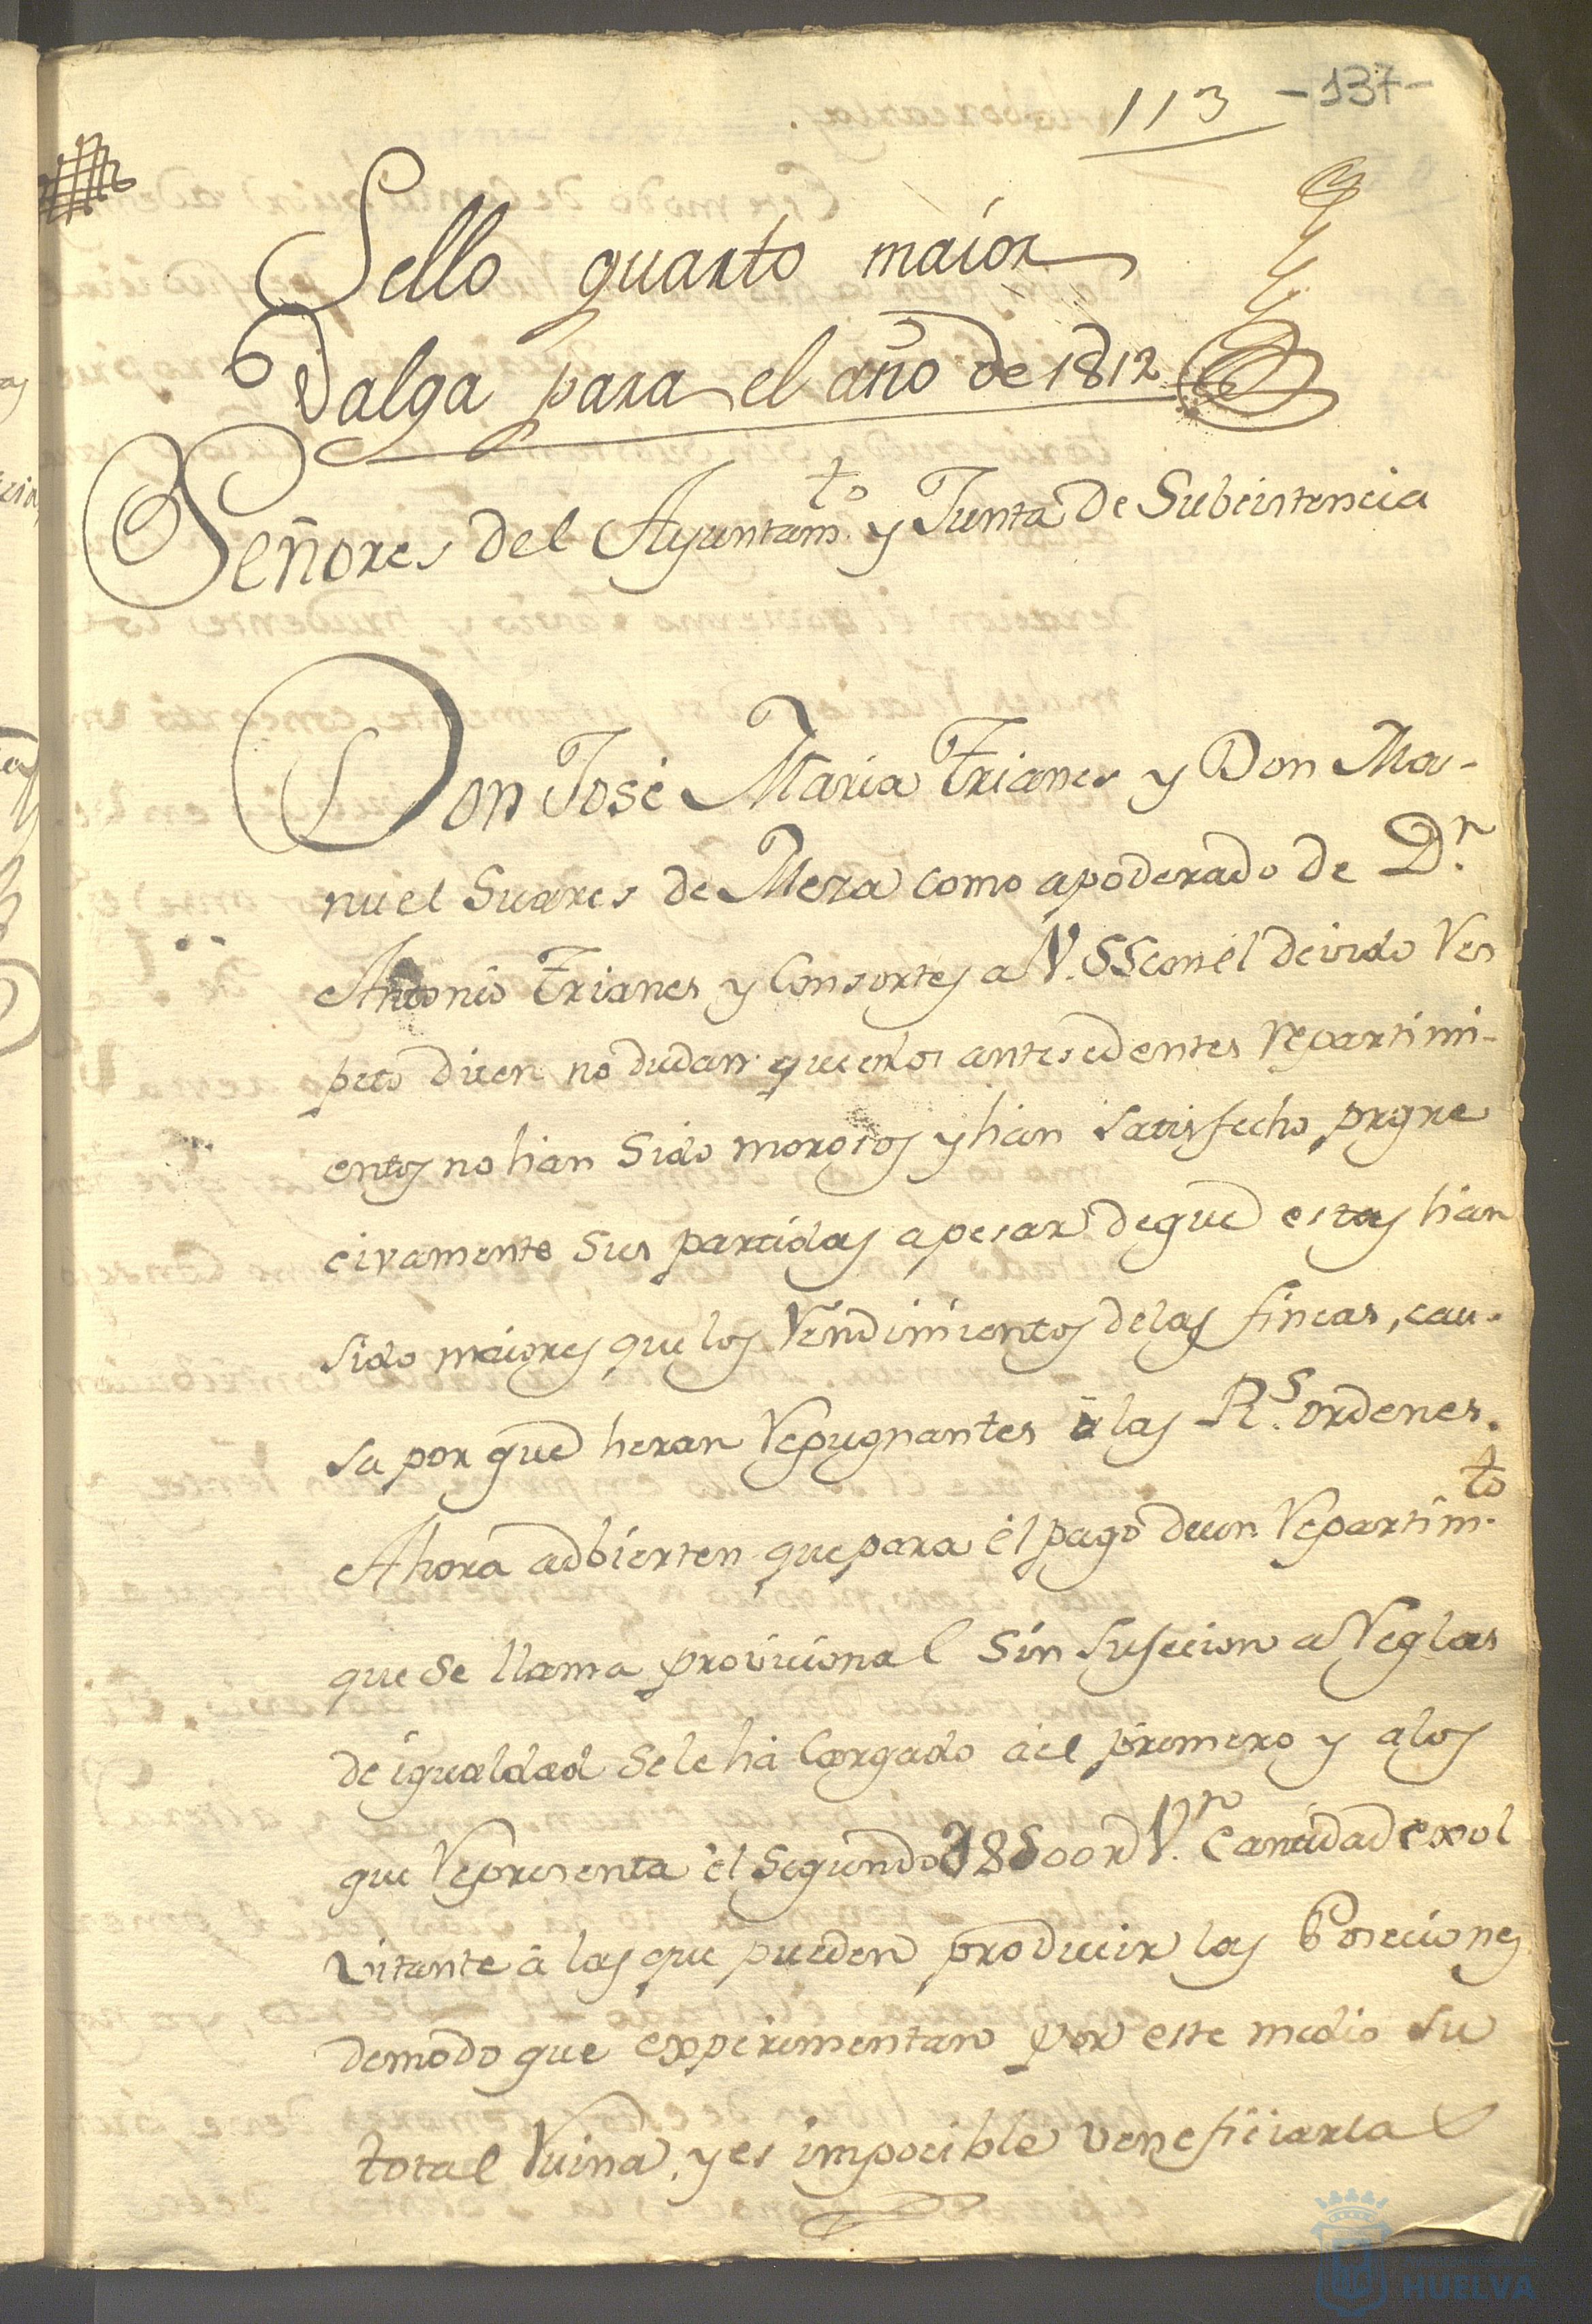 113 -137-
Sello quarto maior
Valga para el año de 1812
Señores del Ayuntam.to y Junta de Subcistencia
Don José Maria Trianes y Don Ma-
nuel Suares de Mesa como apoderado de D.n
Antonio Trianes y Consortes a V. SS con el devido Res
peto dicen no dudan que en los antesedentes repartimi-
entos no han sido morosos y han satisfecho prgre
civamente sus partidas apesar de que estas han
sido maiores que los Rendimientos de las fincas, cau-
sa por que heran Repugnantes á las R.s ordenes.
Ahora adbierten que para el pago de un Repartim.to
que se llama provicional sin sufecion a Reglas
de igualdad se le há Cargado á el primero y a los
que Representa el segundo 38500 r.d V.n Cantidad exol
vitante á las que pueden producir las Posecciones
de modo que experimentan por este medio su
total Ruina, y es impocible veneficiarla
HUELVA